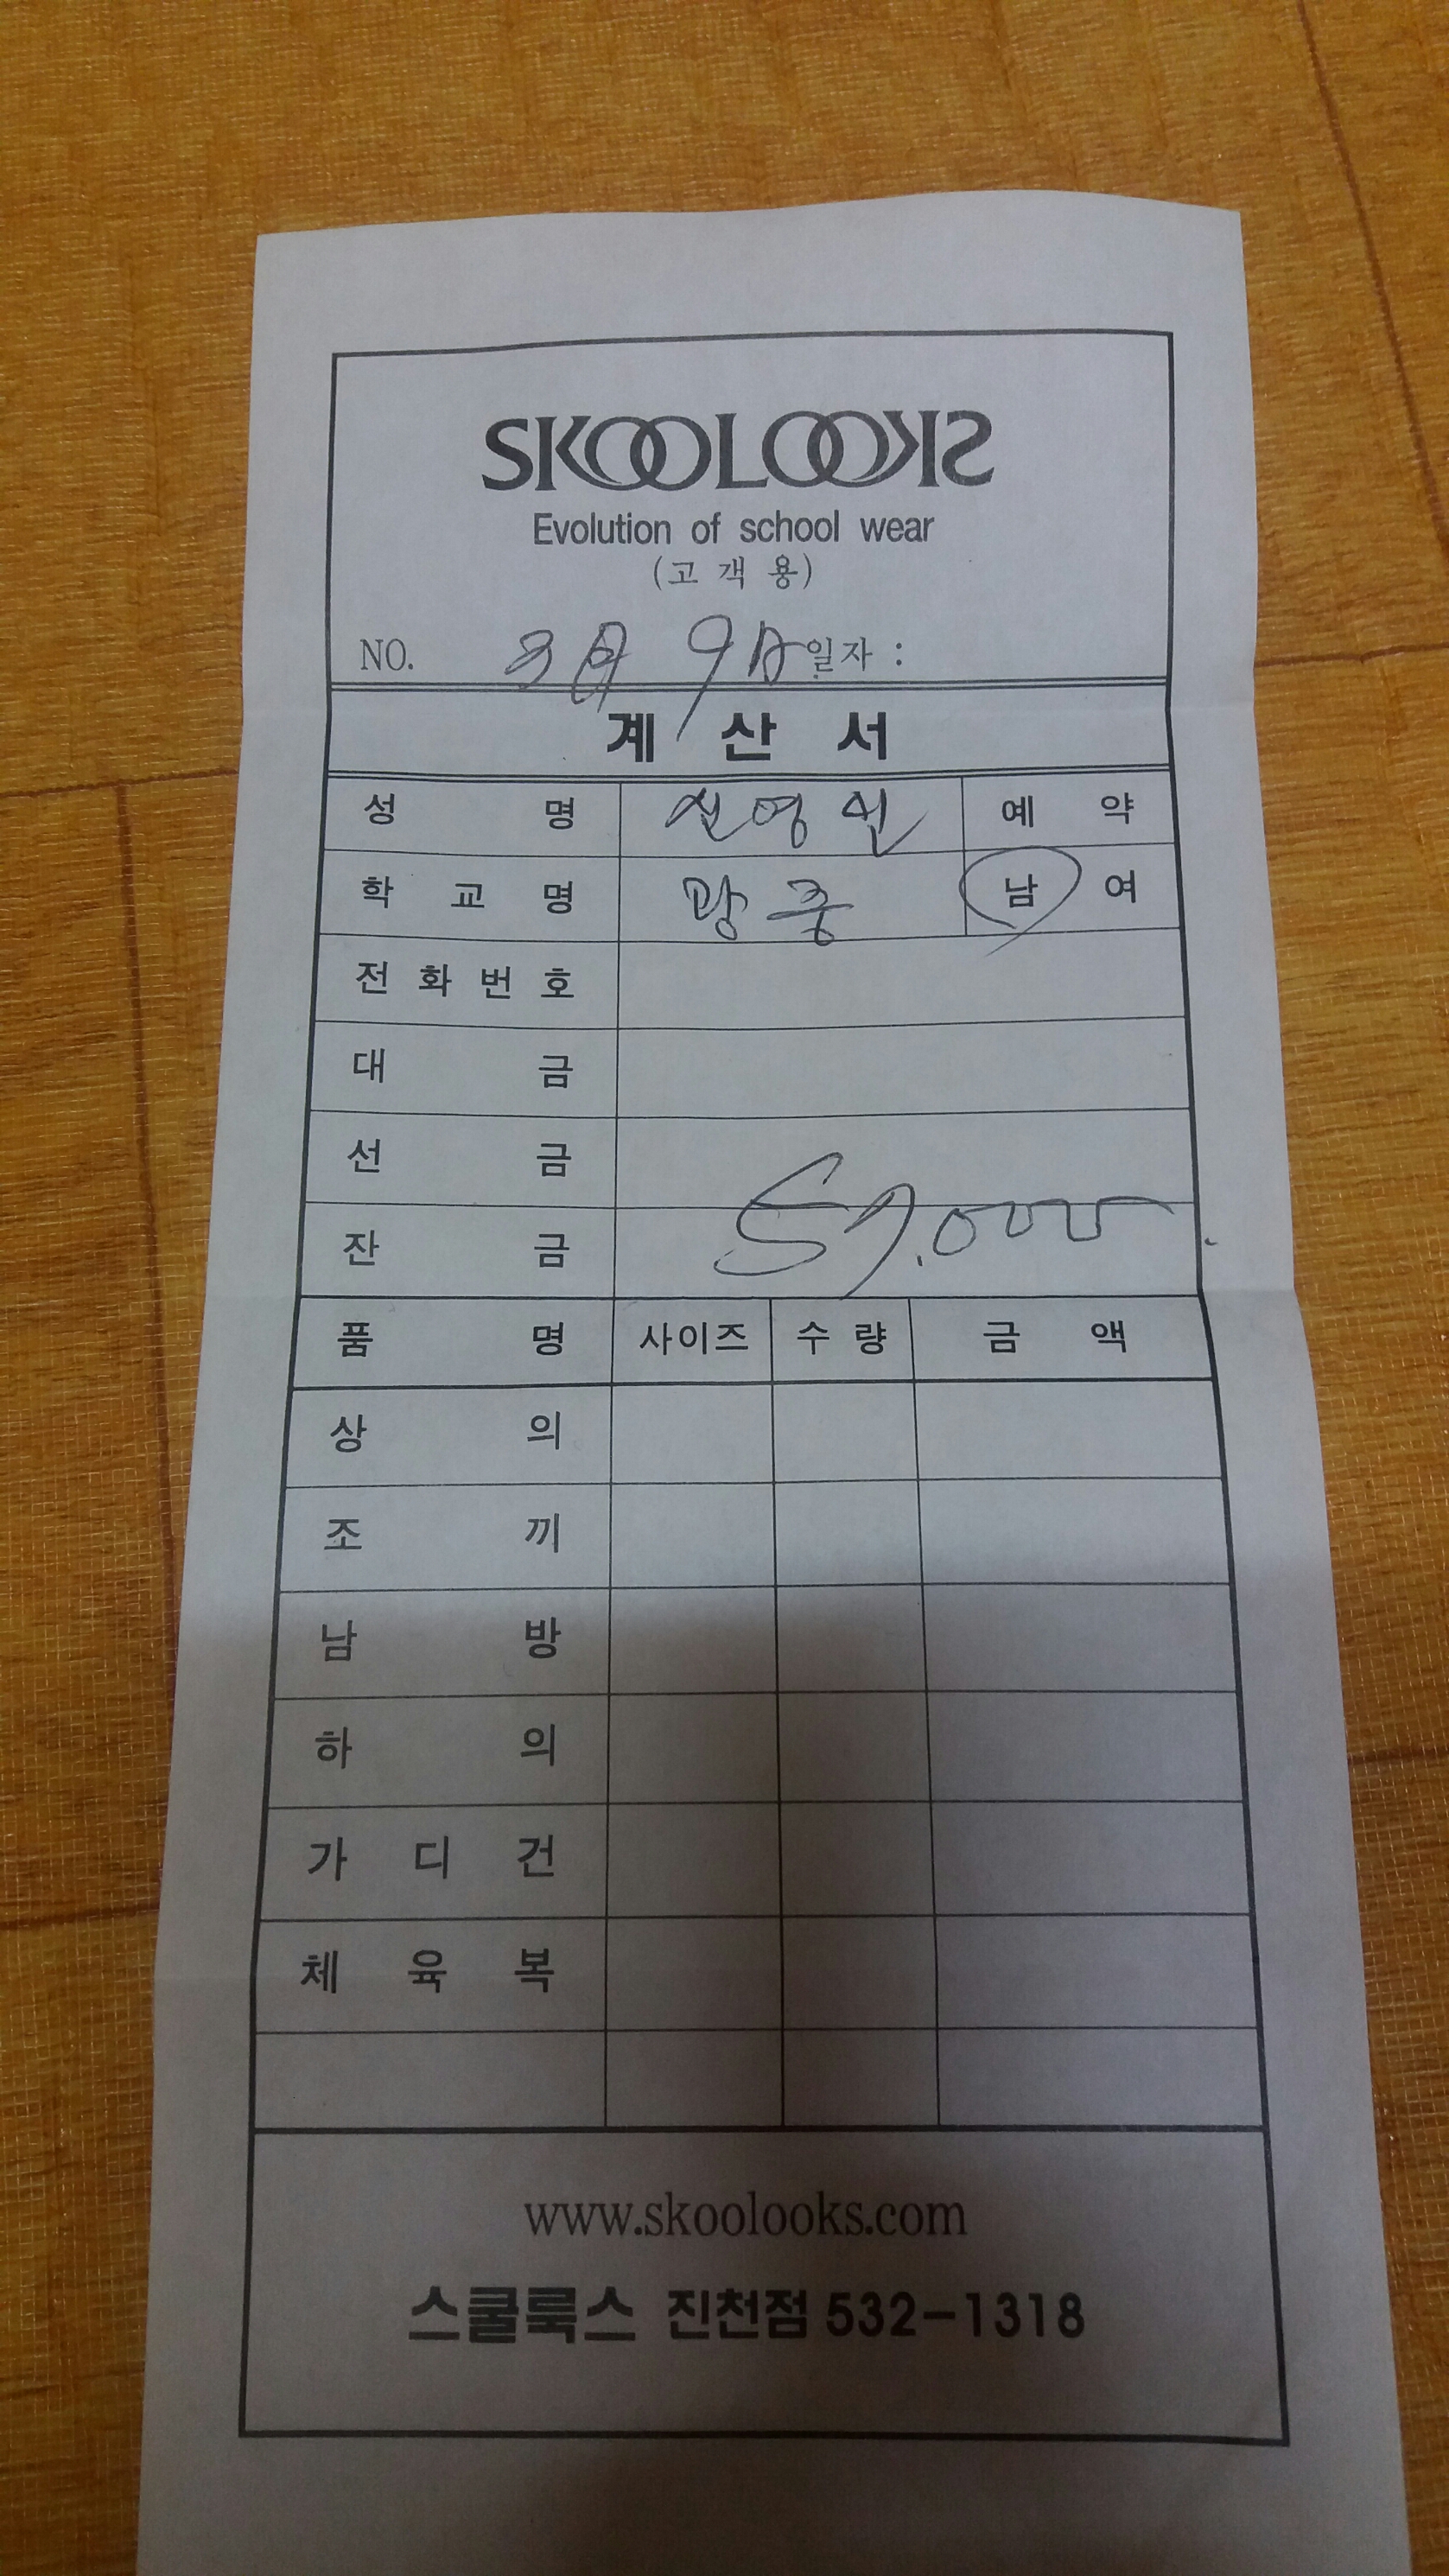 SKOOLOOKS
Evolution of school wear
(고 객 용)
NO. 3월 9일 일자 :
계 산 서
성 명 영 예 약
학 교 명 광 중 남 여
전 화 번 호
대 금
선 금
잔 금 59.000
품 명 사이즈 수 량 금 액
상 의
조 끼
남 방
하 의
가 디 건
체 육 복
www.skoolooks.com
스쿨룩스 진천점 532-1318